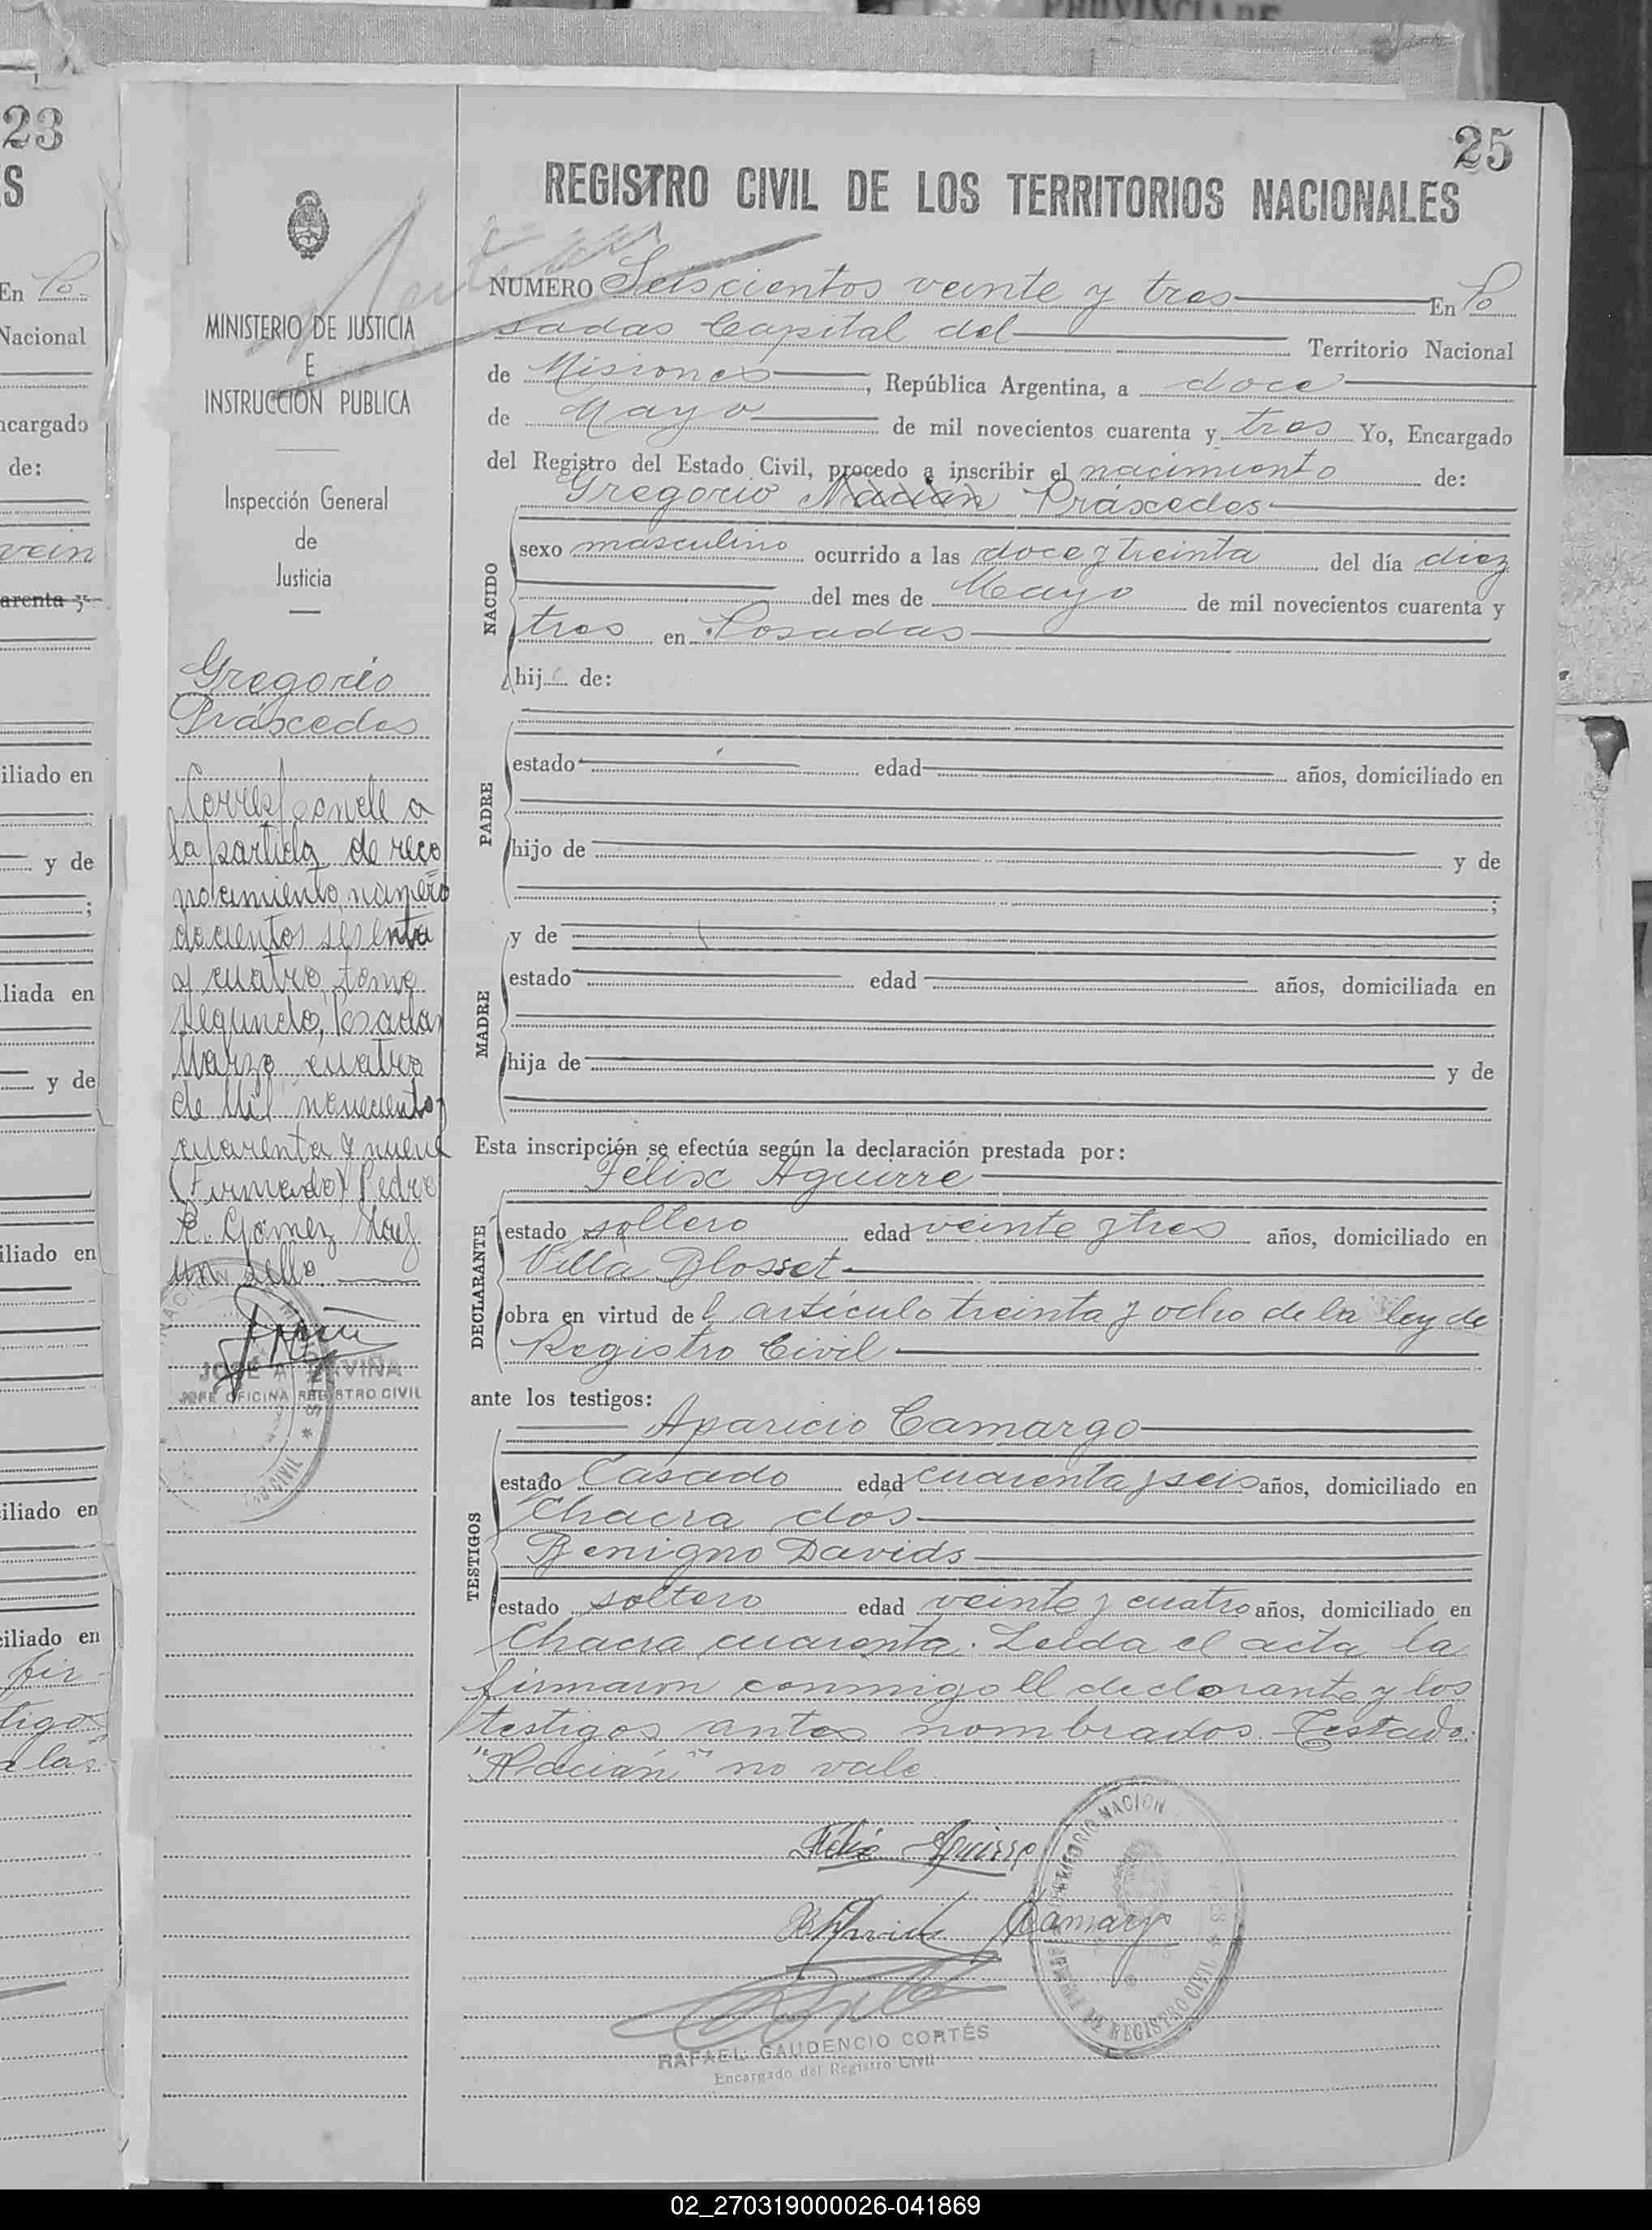 PROVINCIA DE
23
S
En Po
Nacional
ncargado
de:
vein
arenta y
iliado en
y de
;
liada en
y de
iliado en
iliado en
iliado en
fir
tigos
a las
25
REGISTRO CIVIL DE LOS TERRITORIOS NACIONALES
MINISTERIO DE JUSTICIA
E
INSTRUCCIÓN PUBLICA
Inspección General
de
Justicia
Gregorio
Práxcedes
Corresponde a
la partida de reco
nocimiento número
docientos sesenta
y cuatro, tomo
segundo, Posadas
Marzo cuatro
de Mil novecientos
cuarenta y nueve
(Firmado) Pedro
R. Gómez Hay
un sello
JOSE A. LAVIÑA
JEFE OFICINA REGISTRO CIVIL
NUMERO Seiscientos veinte y tres En Po
sadas Capital del Territorio Nacional
de Misiones, República Argentina, a doce
de Mayo de mil novecientos cuarenta y tres Yo, Encargado
del Registro del Estado Civil, procedo a inscribir el nacimiento de:
Gregorio Macián Práxcedes
NACIDO
sexo masculino ocurrido a las doce y treinta del día diez
del mes de Mayo de mil novecientos cuarenta y
tres en Posadas
hij de:
PADRE
estado edad años, domiciliado en
hijo de y de
;
y de
MADRE
estado edad años, domiciliada en
hija de y de
Esta inscripción se efectúa según la declaración prestada por:
Félix Aguirre
DECLARANTE
estado soltero edad veinte y tres años, domiciliado en
Villa Blosset
obra en virtud del artículo treinta y ocho de la ley de
Registro Civil
ante los testigos:
Aparicio Camargo
TESTIGOS
estado Casado edad cuarenta y seis años, domiciliado en
Chacra dos
Benigno Davids
estado soltero edad veinte y cuatro años, domiciliado en
Chacra cuarenta. Leída el acta la
firmaron conmigo el declarante y los
testigos antes nombrados. Testado:
"Macián" no vale
Félix Aguirre
BDavids Camargo
RAFAEL GAUDENCIO CORTÉS
Encargado del Registro Civil
02_270319000026-041869